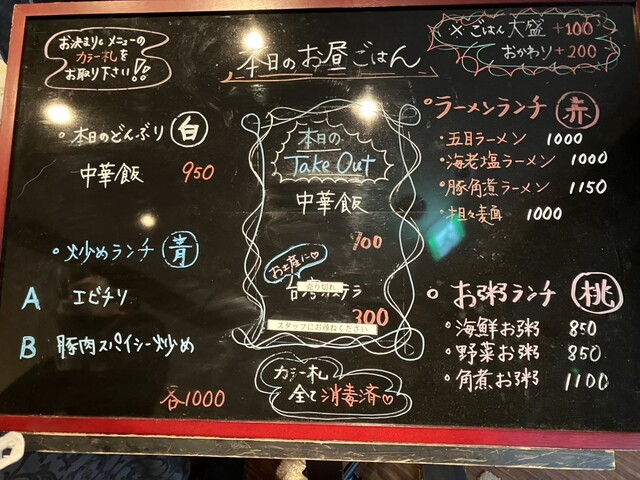 お決まりのメニューの
カラー札を
お取り下さい!!
本日のお昼ごはん
※ごはん大盛+100
おかわり+200
本日のどんぶり 白
中華飯 950
炒めランチ 青
A エビチリ
B 豚肉スパイシー炒め
各1000
本日の
Take Out
中華飯
700
お土産に♡
売り切れ
300
スタッフにお尋ねください
カラー札
全て消毒済♡
ラーメンランチ 赤
・五目ラーメン 1000
・海老塩ラーメン 1000
・豚角煮ラーメン 1150
・担々麺 1000
お粥ランチ 桃
・海鮮お粥 850
・野菜お粥 850
・角煮お粥 1100